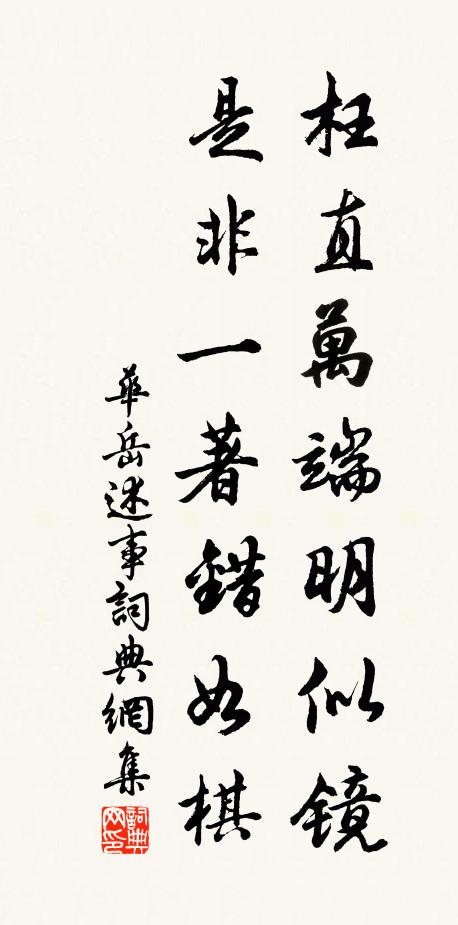 枉直萬端明似鏡
是非一著錯如棋
華岳述事詞典網集
詞典網印